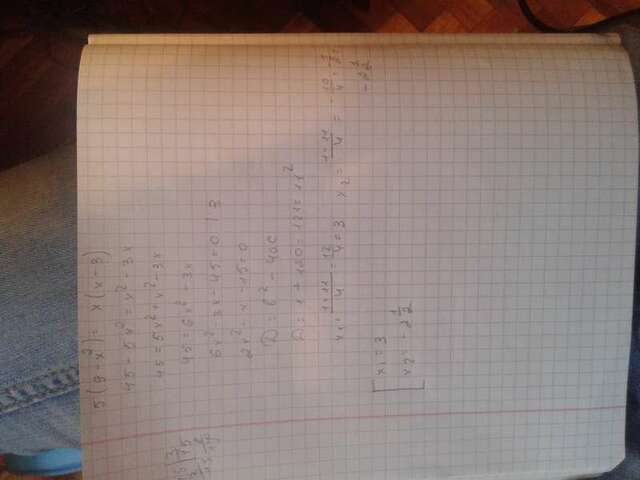 5(9-x²)= x(x-3)
45-5x²=x²-3x
45=5x²+x²-3x
45=6x²-3x
6x²-3x-45=0 | 3
2x²-x-15=0
D=b²-4ac
D=1+120=121=11²
x₁=1+11/4=12/4=3 x₂=1-11/4=-10/4=
-2 1/2
[x₁=3
x₂=-2 1/2